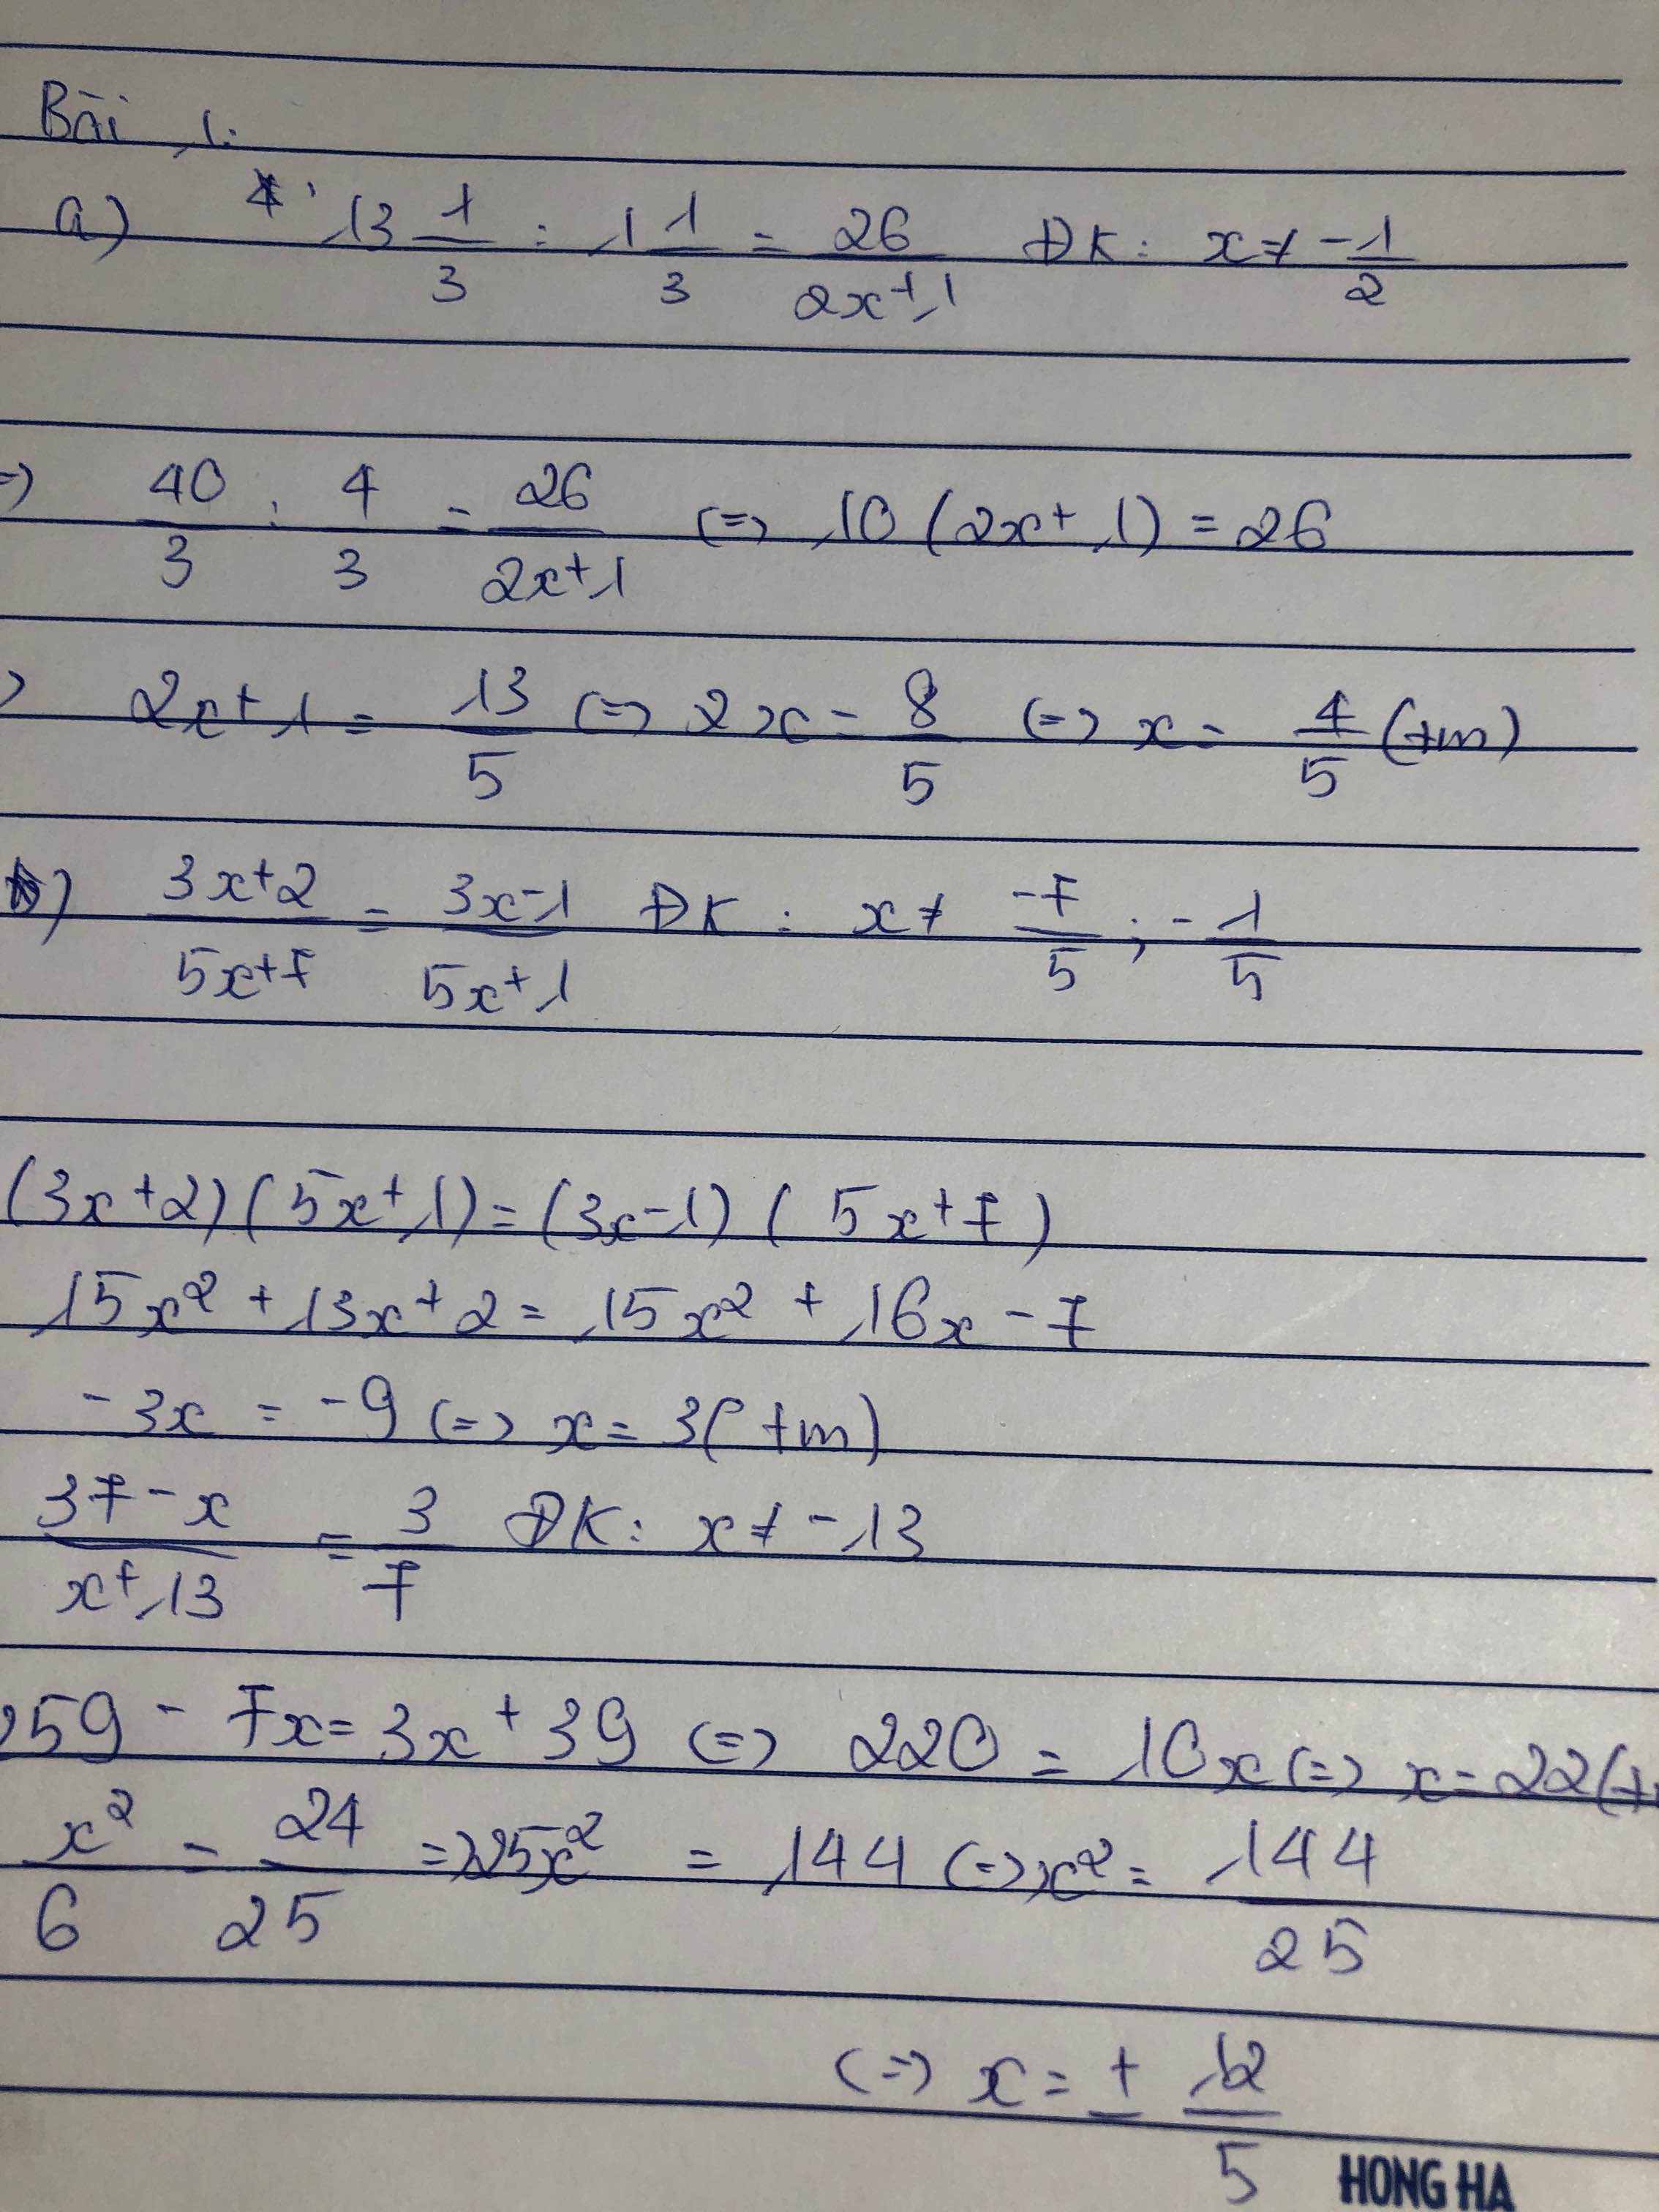 Bài 1:
a) 13 1/3 : 1 1/3 = 26/(2x+1) ĐK: x ≠ -1/2
=> 40/3 : 4/3 = 26/(2x+1) <=> 10(2x+1) = 26
> 2x+1 = 13/5 <=> 2x = 8/5 <=> x = 4/5 (tm)
b) (3x+2)/(5x+7) = (3x-1)/(5x+1) ĐK: x ≠ -7/5 ; -1/5
(3x+2)(5x+1) = (3x-1)(5x+7)
15x² + 13x + 2 = 15x² + 16x - 7
-3x = -9 <=> x = 3 (tm)
(37-x)/(x+13) = 3/7 ĐK: x ≠ -13
259 - 7x = 3x + 39 <=> 220 = 10x <=> x = 22 (t
x²/6 = 24/25 => 25x² = 144 <=> x² = 144/25
<=> x = ± 12/5
HONG HA